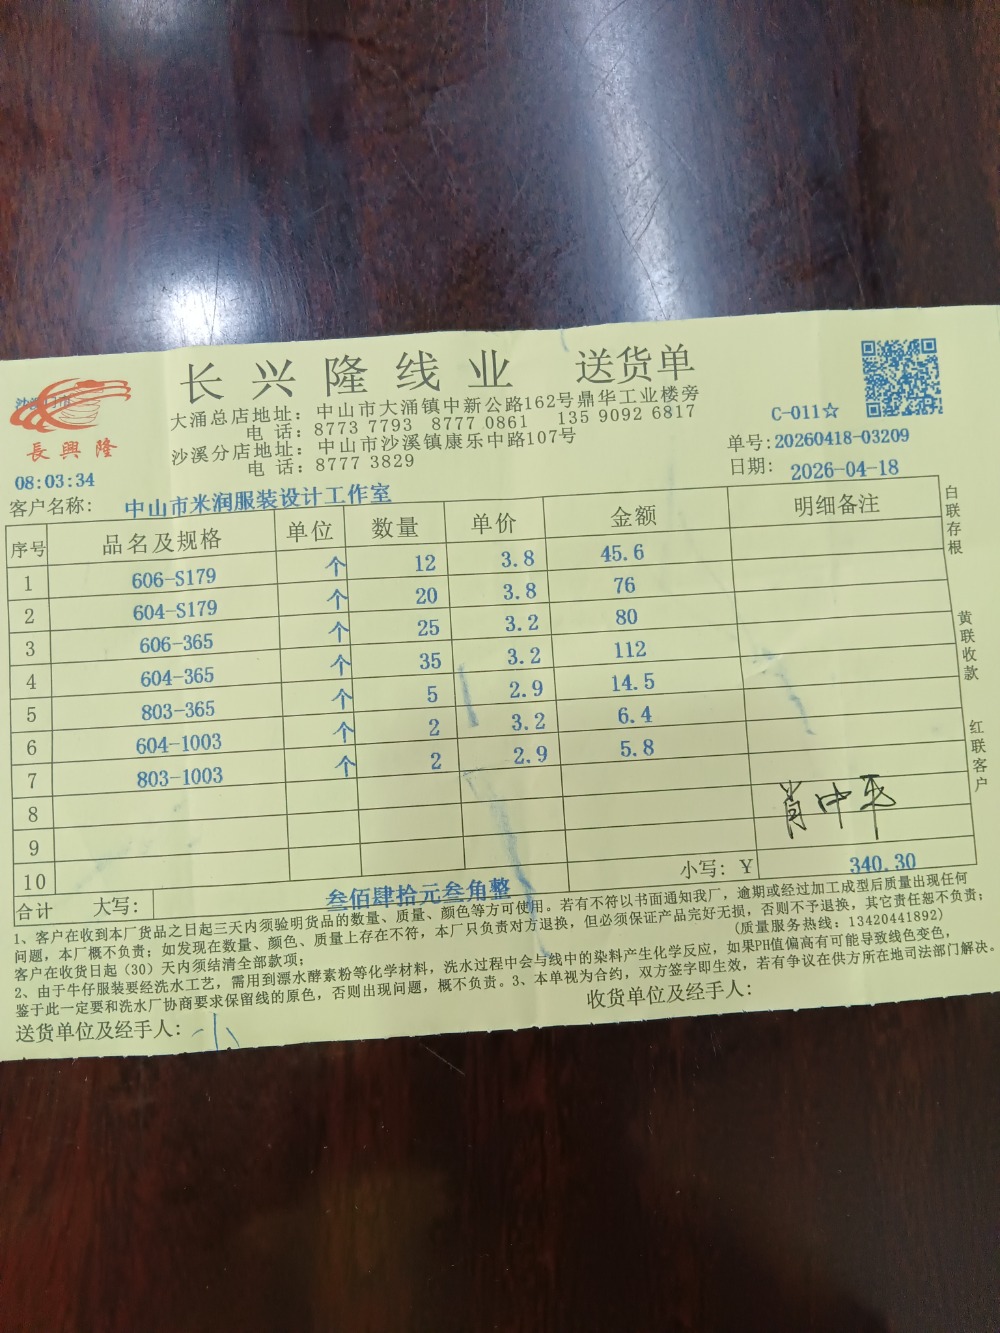 长兴隆线业 送货单
長興隆
大涌总店地址：中山市大涌镇中新公路162号鼎华工业楼旁
电 话：8773 7793 8777 0861 135 9092 6817
沙溪分店地址：中山市沙溪镇康乐中路107号
电 话：8777 3829
C-011☆
单号:20260418-03209
日期：2026-04-18
08:03:34
客户名称：中山市米润服装设计工作室
序号 品名及规格 单位 数量 单价 金额 明细备注
1 606-S179 个 12 3.8 45.6
2 604-S179 个 20 3.8 76
3 606-365 个 25 3.2 80
4 604-365 个 35 3.2 112
5 803-365 个 5 2.9 14.5
6 604-1003 个 2 3.2 6.4
7 803-1003 个 2 2.9 5.8
8
9
10
肖中平
合计 大写：叁佰肆拾元叁角整 小写：Y 340.30
白联存根
黄联收款
红联客户
1、客户在收到本厂货品之日起三天内须验明货品的数量、质量、颜色等方可使用。若有不符以书面通知我厂，逾期或经过加工成型后质量出现任何
问题，本厂概不负责；如发现在数量、颜色、质量上存在不符，本厂只负责对方退换，但必须保证产品完好无损，否则不予退换，其它责任恕不负责；
客户在收货日起（30）天内须结清全部款项； (质量服务热线：13420441892)
2、由于牛仔服装要经洗水工艺，需用到漂水酵素粉等化学材料，洗水过程中会与线中的染料产生化学反应，如果PH值偏高有可能导致线色变色，
鉴于此一定要和洗水厂协商要求保留线的原色，否则出现问题，概不负责。3、本单视为合约，双方签字即生效，若有争议在供方所在地司法部门解决。
送货单位及经手人： 收货单位及经手人：